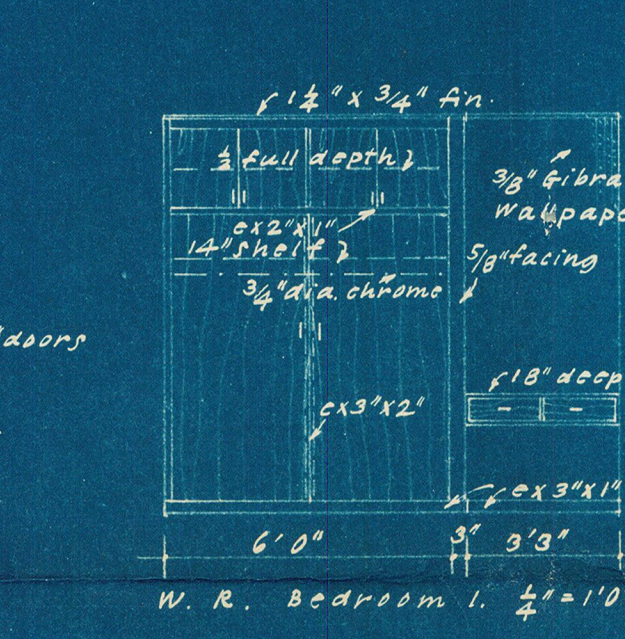 1¼" x 3/4" fin.
½ full depth
3/8" Gibra
Wallpape
ex 2" x 1"
14" shelf
5/8" facing
3/4" dia. chrome
"doors
18" deep
ex 3" x 2"
ex 3" x 1"
6'0" 3" 3'3"
W. R. Bedroom 1. ¼" = 1'0